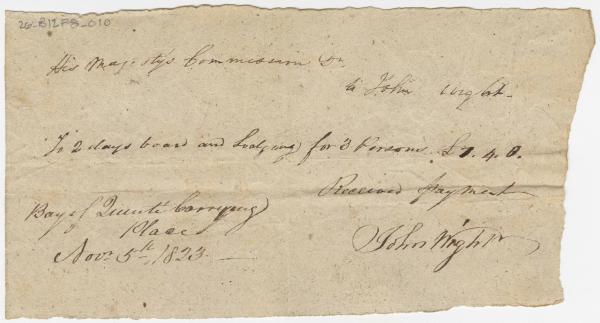 26-B12F8-010
His Majestys Commission Dr.
to John Wright
To 2 days board and Lodging for 3 Persons £1.4.0.
Received payment
Bay of Quinté Carrying
Place
Novr 5th, 1823
John Wright